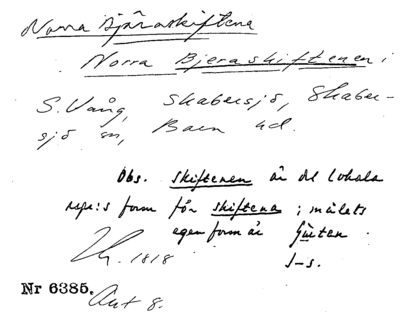 Norra Bjäraskiftena
Norra Bjeraskiftenen i
S. Vång, Skabersjö, Skaber-
sjö sn, Bara hd.
Obs. skiftenen är de lokala
repr:s form för skiftena; målets
egen form är
Zh. 1818
J-s.
Nr 6385. Akt 8.